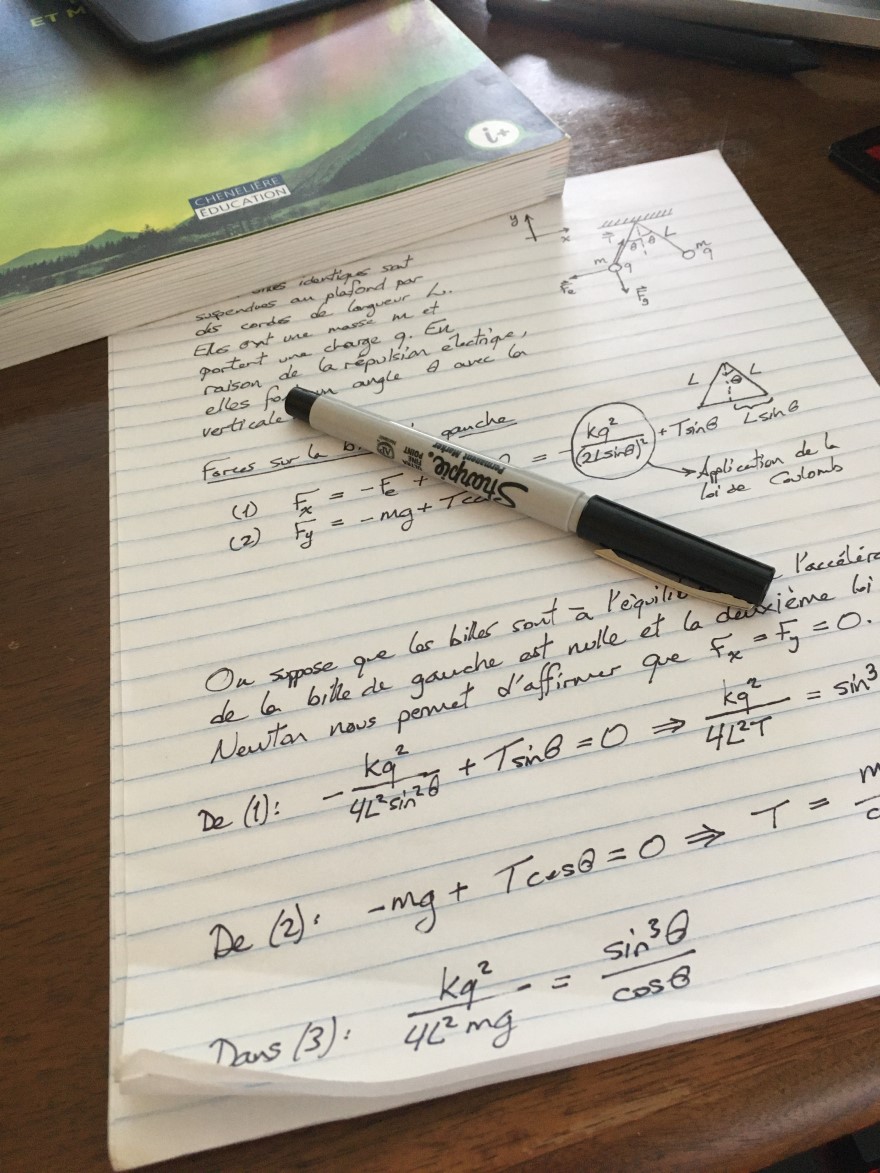 ET M
i+
CHENELIÈRE
ÉDUCATION
y
x
T L
θ θ
m q
m q
Fe
Fg
identiques sont
suspendues au plafond par
des cordes de longueur L.
Elles ont une masse m et
portent une charge q. En
raison de la répulsion électrique,
elles fo un angle θ avec la
verticale
L θ L
L sin θ
Forces sur la b gauche
(1) Fx = -Fe + = - kq²/(2L sin θ)² + T sin θ
(2) Fy = -mg + T cos
Application de la
loi de Coulomb
Sharpie.
FINE POINT
Permanent Marker
On suppose que les billes sont à l'équili l'accéléra
de la bille de gauche est nulle et la deuxième loi
Newton nous permet d'affirmer que Fx = Fy = 0.
De (1): - kq²/4L² sin² θ + T sin θ = 0 ⇒ kq²/4L²T = sin³
De (2): -mg + T cos θ = 0 ⇒ T = m/c
Dans (3): kq²/4L² mg = sin³ θ/cos θ